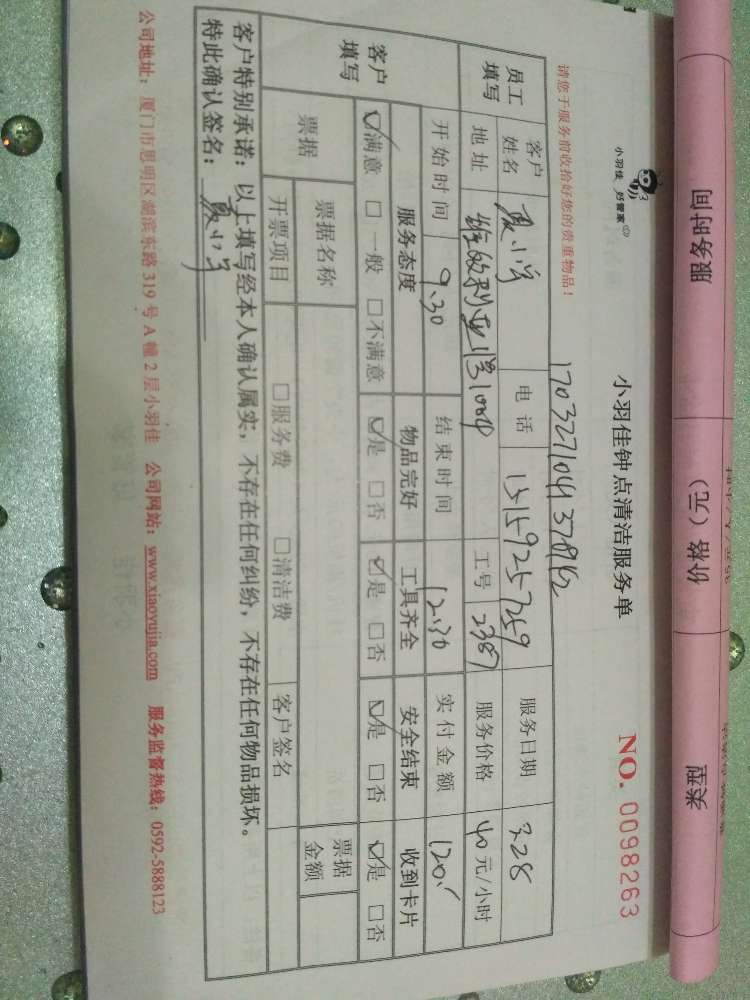 类型 价格（元） 服务时间
小羽佳 好管家
小羽佳钟点清洁服务单
NO. 0098263
请您于服务前收拾好您的贵重物品！
员工填写
客户姓名 夏小常 电话 服务日期 3.28
地址 工号 2387 服务价格 40 元/小时
开始时间 9.30 结束时间 12.30 实付金额 120.
客户填写
服务态度 物品完好 工具齐全 安全结束 收到卡片
☑满意 □一般 □不满意 ☑是 □否 ☑是 □否 ☑是 □否 ☑是 □否
票据
票据名称 票据金额
开票项目 □服务费 □清洁费 客户签名
客户特别承诺：以上填写经本人确认属实，不存在任何纠纷，不存在任何物品损坏。
特此确认签名：
公司地址：厦门市思明区湖滨东路 319 号 A 幢 2 层小羽佳 公司网站：www.xiaoyujia.com 服务监督热线：0592-5888123